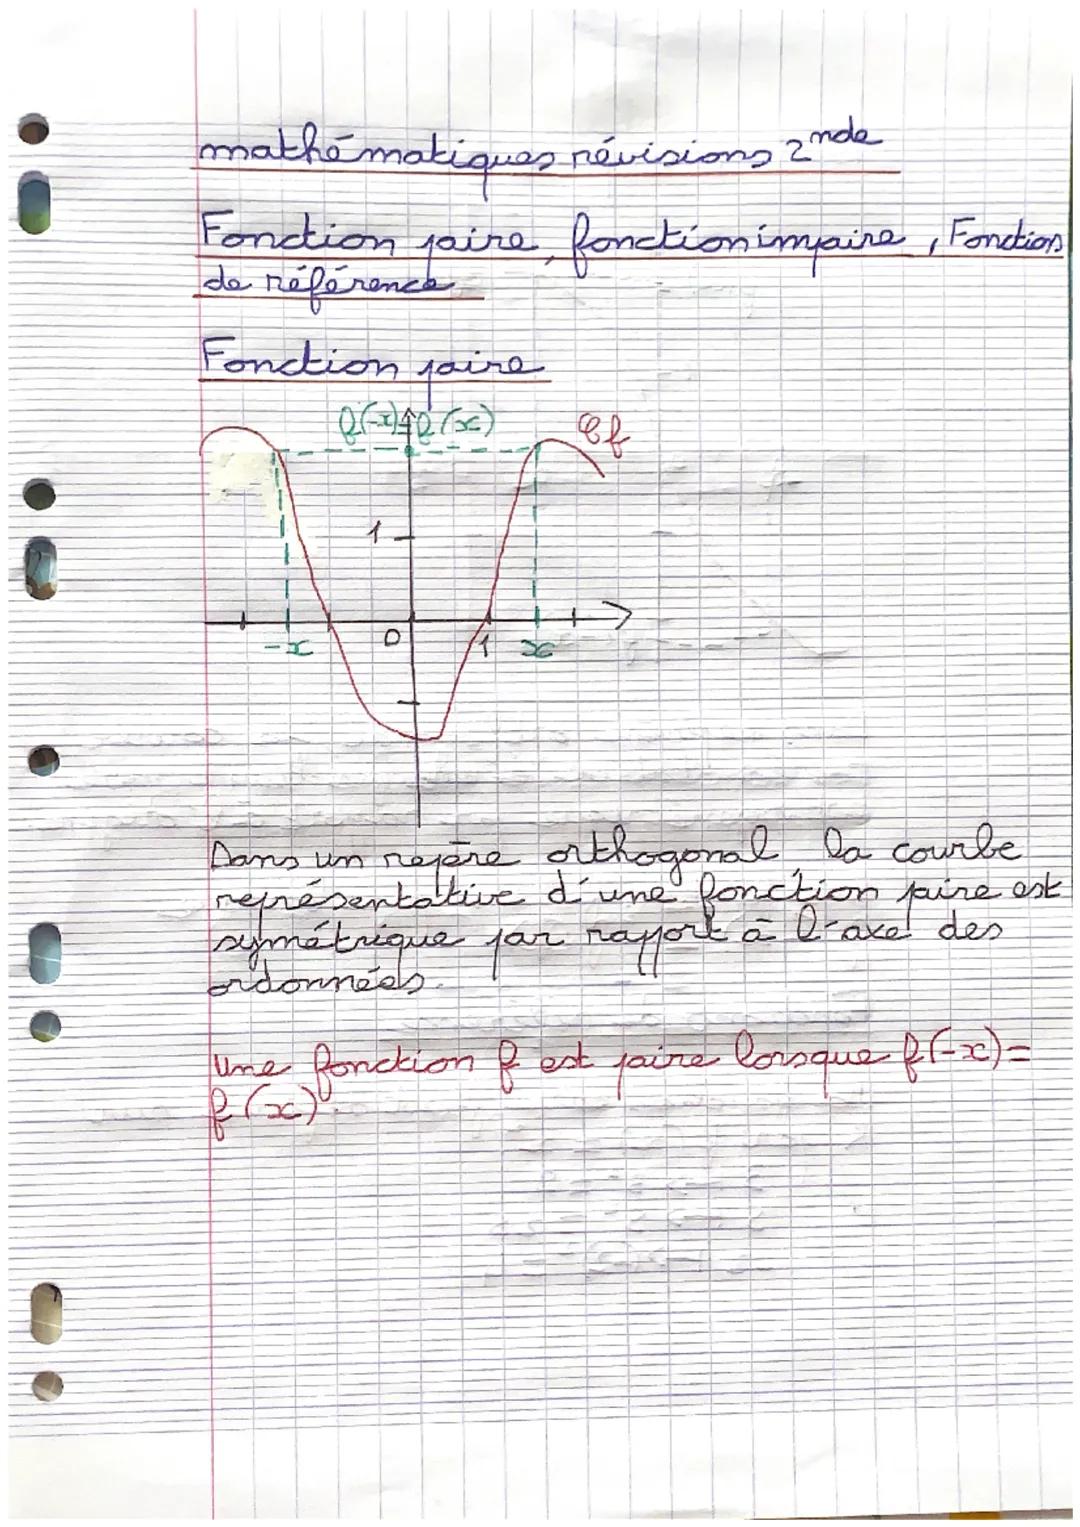 mathématiques révisions 2nde
Fonction paire, fonction impaire, Fonctions
de référence
Fonction paire
f(-x)=f(x)
Cf
1
-x
0
1
x
Dans un repère orthogonal, la courbe
représentative d'une fonction paire est
symétrique par rapport à l'axe des
ordonnées.
Une fonction f est paire lorsque f(-x)=
f(x).